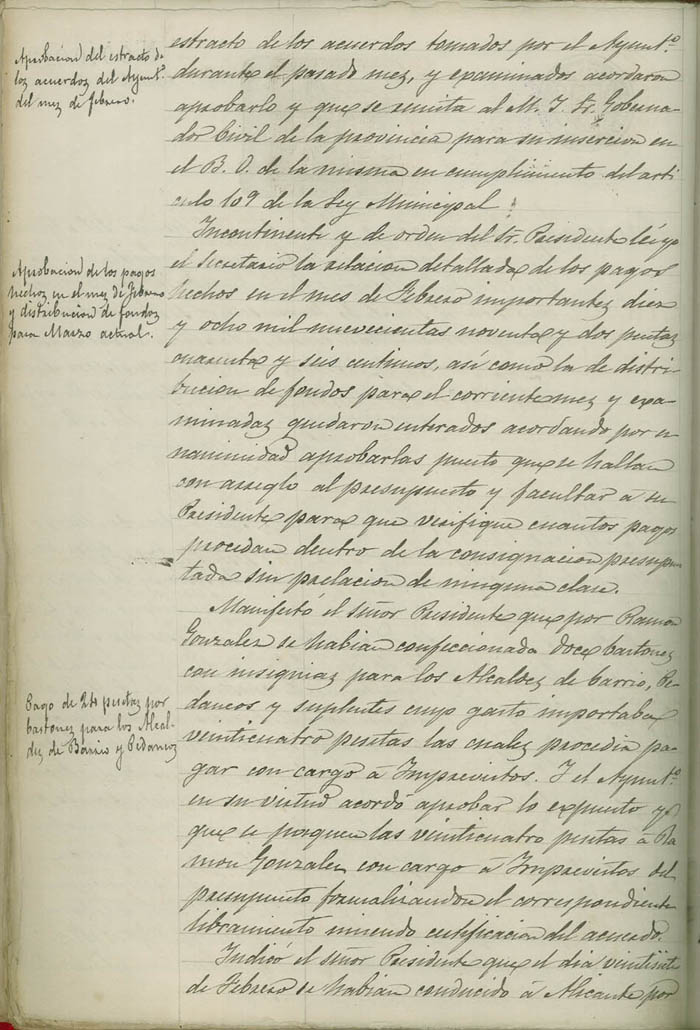 Aprobacion del estracto de
los acuerdos del Ayuntº
del mes de febrero.
estracto de los acuerdos tomados por el Ayuntº
durante el pasado mes, y examinados acordaron
aprobarlo y que se remita al M. I. Sr. Goberna-
dor Civil de la provincia para su insercion en
el B. O. de la misma en cumplimiento del arti
culo 109 de la Ley Municipal
Aprobacion de los pagos
hechos en el mes de Febrero
y distribucion de fondos
para Marzo actual.
Incontinente y de orden del Sr. Presidente leí yo
el Secretario la relacion detallada de los pagos
hechos en el mes de Febrero importantes diez
y ocho mil nuevecientas noventa y dos pesetas
cuarenta y seis centimos, así como la de distri-
bucion de fondos para el corriente mes y exa-
minadas quedaron enterados acordando por u
nanimidad aprobarlas puesto que se hallan
con arreglo al presupuesto y facultar a su
Presidente para que verifique cuantos pagos
procedan dentro de la consignacion presupues
tada sin prelacion de ninguna clase.
Pago de 24 pesetas por
bastones para los Alcal-
des de Barrio y Pedaneos
Manifestó el señor Presidente que por Ramon
Gonzalez se habian confeccionado doce bastones
con insignias para los Alcaldes de barrio, Pe-
daneos y suplentes cuyo gasto importaba
veinticuatro pesetas las cuales procedia pa-
gar con cargo á Imprevistos. Y el Ayuntº
en su virtud acordó aprobar lo expuesto y
que se paguen las veinticuatro pesetas á Ra
mon Gonzalez con cargo á Imprevistos del
presupuesto formalizandose el correspondiente
libramiento uniendo certificacion del acuerdo.
Indicó el señor Presidente que el dia veintisiete
de Febrero se habian conducido á Alicante por